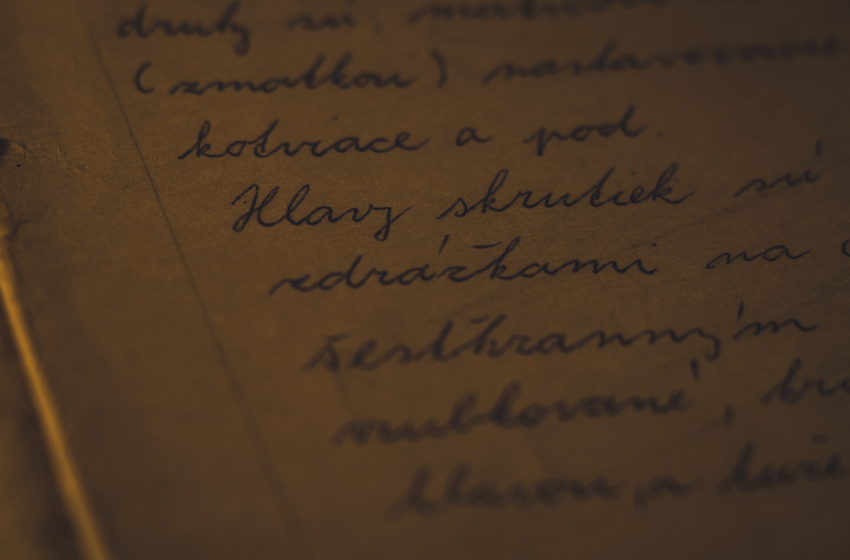 druhy sú.
(zmatkou) nastavovacie
kotviace a pod.
Hlavy skrutiek sú
zdrážkami na
šesťhranným
vrubkované,
hlavou, a